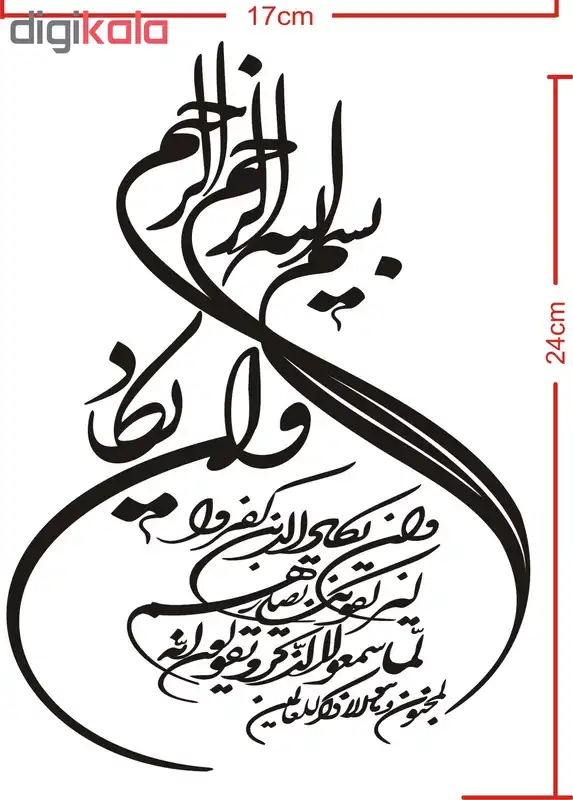 17cm
digikala
24cm
بسم الله الرحمن الرحيم
وان یکاد
وان یکاد الذین کفروا
لیزلقونک بابصارهم
لمّا سمعوا الذّکر و یقولون انّه
لمجنون و ما هو الا ذکر للعالمین